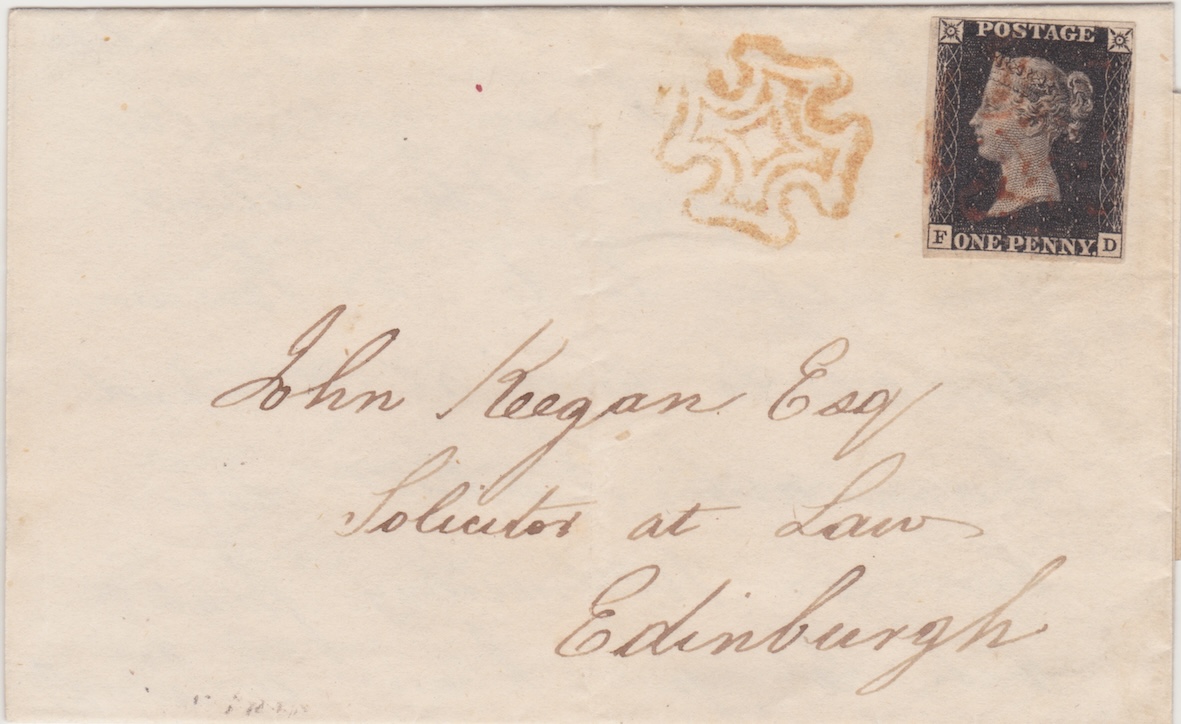 POSTAGE
F ONE PENNY. D
John Keegan Esq
Solicitor at Law
Edinburgh